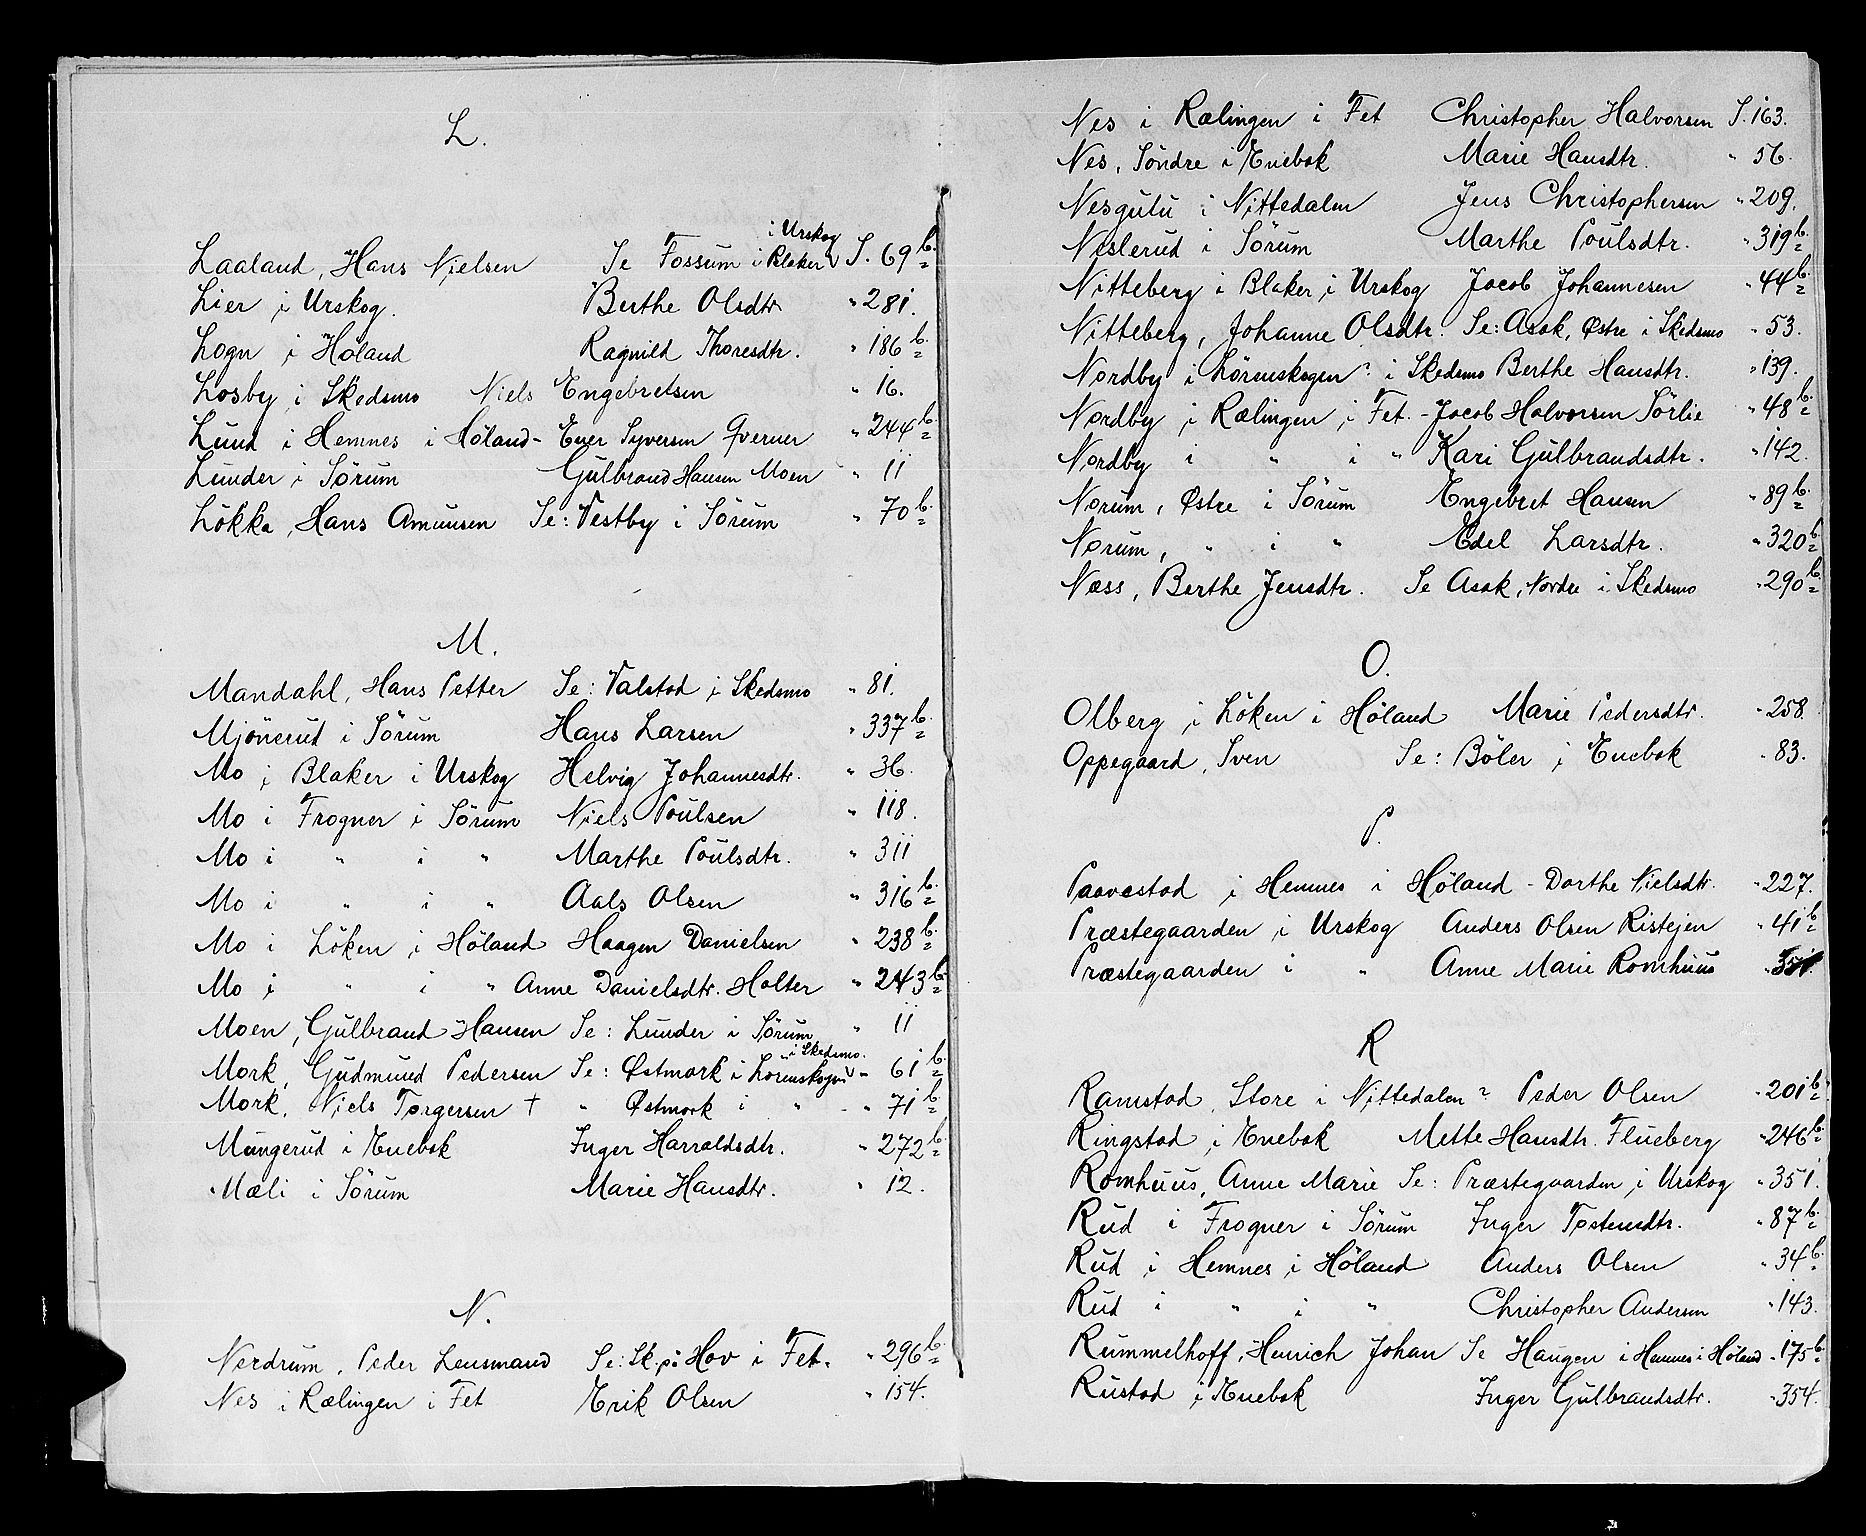 L.
Laaland, Hans Nielsen Se Fossum i Blaker i Urskog S. 69 b.
Lier i Urskog. Berthe Olsdtr " 281.
Logn i Høland Ragnild Thoresdtr. " 186 b.
Losby i Skedsmo Niels Engebretsen " 16.
Lund i Hemnes i Høland - Ener Syversen Qverner " 244 b.
Lunder i Sörum Gulbrand Hansen Moen " 11
Lökka, Hans Amunsen Se: Vestby i Sörum " 70 b.
M.
Mandahl, Hans Petter Se: Valstad i Skedsmo " 81.
Mjönerud i Sörum Hans Larsen " 337 b.
Mo i Blaker i Urskog Helvig Johannesdtr. " 36.
Mo i Frogner i Sörum Niels Poulsen " 118.
Mo i " i " Marthe Poulsdtr. " 311
Mo i " i " Aals Olsen " 316 b.
Mo i Löken i Höland Haagen Danielsen " 238 b.
Mo i " i " Anne Danielsdtr. Holter " 243 b.
Moen, Gulbrand Hansen Se: Lunder i Sörum " 11
Mork, Gudmund Pedersen Se: Østmork i Lörenskogen i Skedsmo. - 61 b.
Mork, Niels Torgersen + " Østmork i " - " 71 b.
Mungerud i Enebak Inger Harraldsdtr. " 272 b.
Mæli i Sörum Marie Hansdtr. " 12.
N.
Nerdrum, Peder Lensmand Se: Sk. på Hov i Fet. " 296 b.
Nes i Rælingen i Fet Erik Olsen " 154.
Nes i Rælingen i Fet Christopher Halvorsen S. 163.
Nes, Söndre i Enebak Marie Hansdtr. " 56.
Nesgutu i Nittedalen Jens Christophersen " 209.
Neslerud i Sörum Marthe Poulsdtr. " 319 b.
Nitteberg i Blaker i Urskog Jacob Johannesen " 44 b.
Nitteberg, Johanne Olsdtr. Se: Asak, Østre i Skedsmo " 53.
Nordby i Lörenskogen? i Skedsmo Berthe Hansdtr. " 139.
Nordby i Rælingen i Fet. - Jacob Halvorsen Sörlie " 48 b.
Nordby i " i " Kari Gulbrandsdtr. " 142.
Norum, Østre i Sörum Engebret Hansen " 89 b.
Norum, " i " Edel Larsdtr. " 320 b.
Næss, Berthe Jensdtr. Se Asak, Nordre i Skedsmo " 290 b.
O.
Olberg i Löken i Höland Marie Pedersdtr. " 258.
Oppegaard, Sven Se: Böler i Enebak " 83.
P.
Paavestad i Hemnes i Höland - Dorthe Nielsdtr. " 227.
Præstegaarden i Urskog Anders Olsen Ristejen " 41 b
Præstegaarden i " Anne Marie Romhuus " 351.
R
Ramstad, Store i Nittedalen? Peder Olsen " 201 b.
Ringstad i Enebak Mette Hansdtr. Flueberg " 246 b.
Romhuus, Anne Marie Se: Præstegaarden i Urskog " 351.
Rud i Frogner i Sörum Inger Tostensdtr. " 87 b.
Rud i Hemnes i Höland Anders Olsen " 34 b.
Rud i " i " Christopher Andersen " 143.
Rummelhoff, Henrich Johan Se Haugen i Hemnes i Höland " 175 b.
Rustad i Enebak Inger Gulbrandsdtr. " 354.